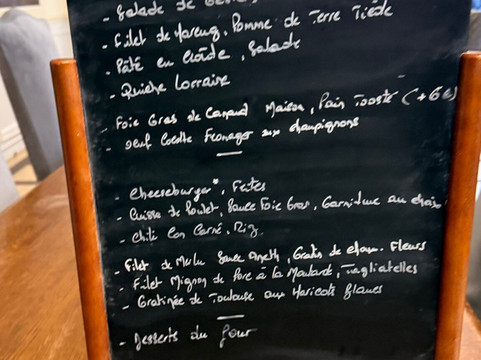 - Salade de
- Filet de Hareng, Pomme de Terre Tiède
- Pâté en Croûte, Salade
- Quiche Lorraine
- Foie Gras de Canard Maison, Pain Toasté (+6€)
- oeuf Cocotte Fromager aux champignons
- Cheeseburger*, Frites
- Cuisse de Poulet, Sauce Foie Gras, Garniture au choix
- Chili Con Carné, Riz,
- Filet de Merlu Sauce Aneth, Gratin de choux-Fleurs
- Filet Mignon de Porc à la Moutarde, Tagliatelles
- Gratinée de Toulouse aux Haricots Blancs
- Desserts du Jour